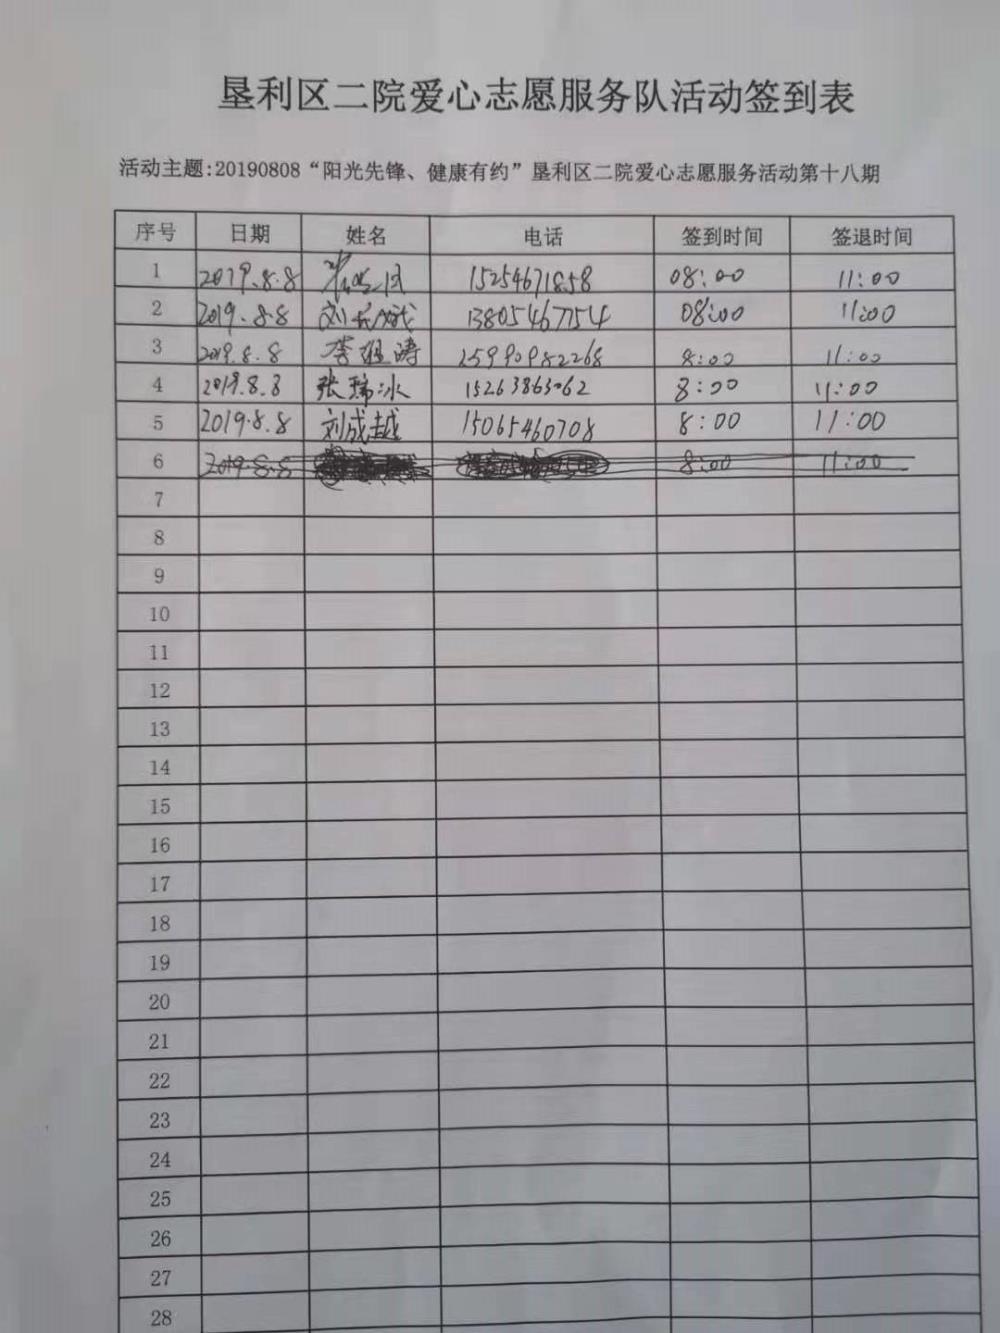 垦利区二院爱心志愿服务队活动签到表
活动主题:20190808“阳光先锋、健康有约”垦利区二院爱心志愿服务活动第十八期
序号 日期 姓名 电话 签到时间 签退时间
1 2019.8.8 15254671858 08:00 11:00
2 2019.8.8 刘 13805467154 08:00 11:00
3 2019.8.8 李 15990982268 8:00 11:00
4 2019.8.8 张瑞冰 15263863062 8:00 11:00
5 2019.8.8 刘成越 15065460708 8:00 11:00
6 2019.8.8 8:00 11:00
7
8
9
10
11
12
13
14
15
16
17
18
19
20
21
22
23
24
25
26
27
28